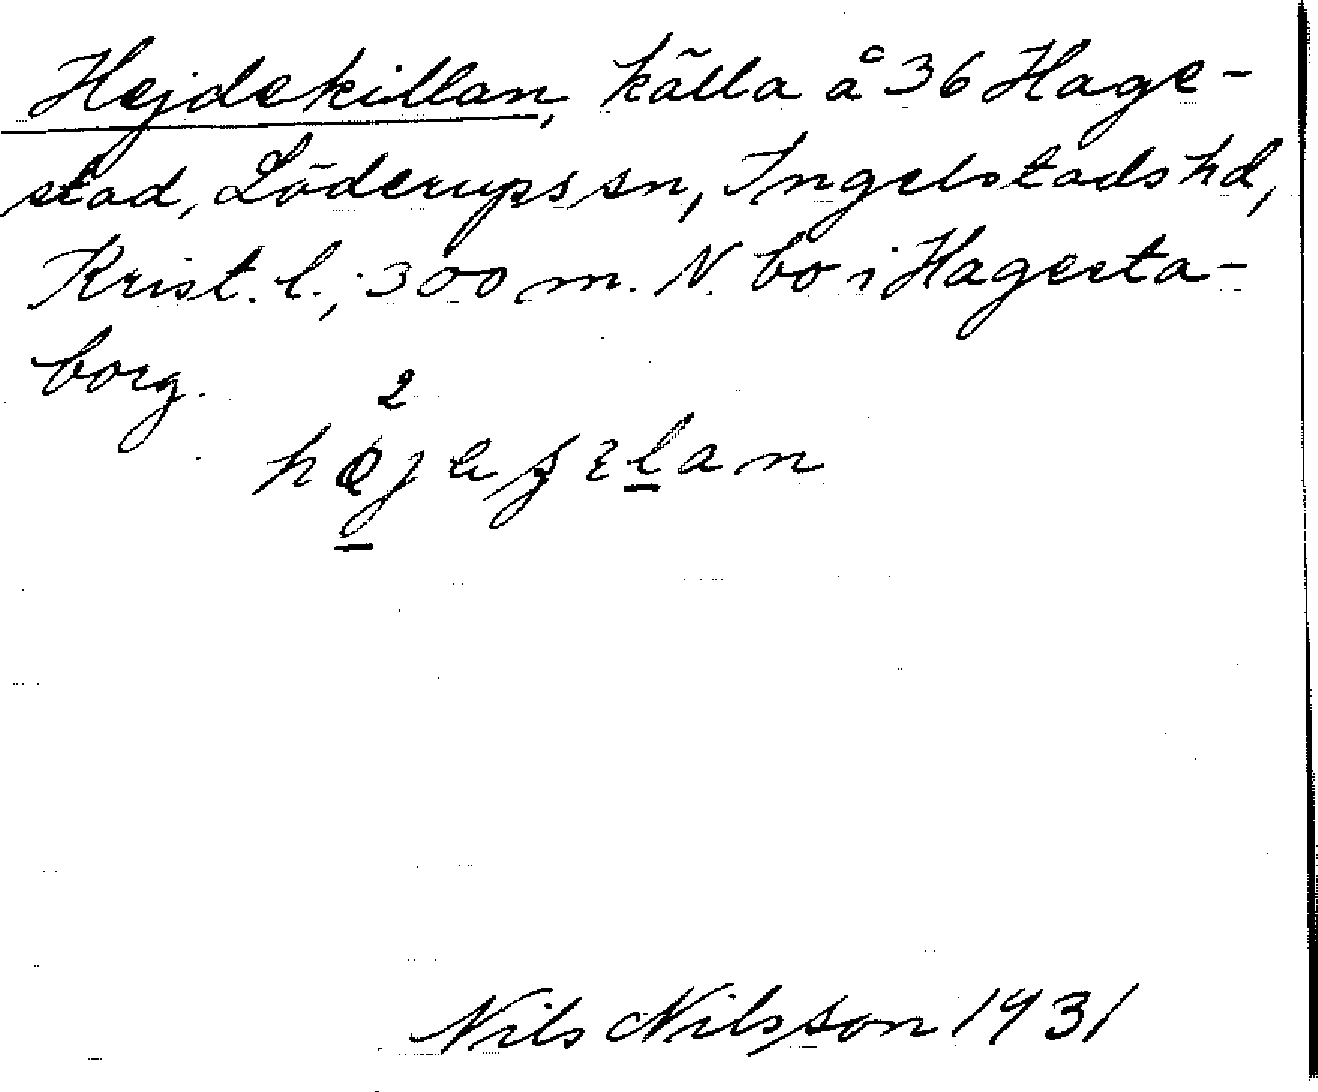 Hejdekillan, källa å 36 Hage-
stad, Löderups sn, Ingelstads hd,
Krist. l.; 300 m. N. bo i Hagesta-
borg.
2
Nils Nilsson 1931